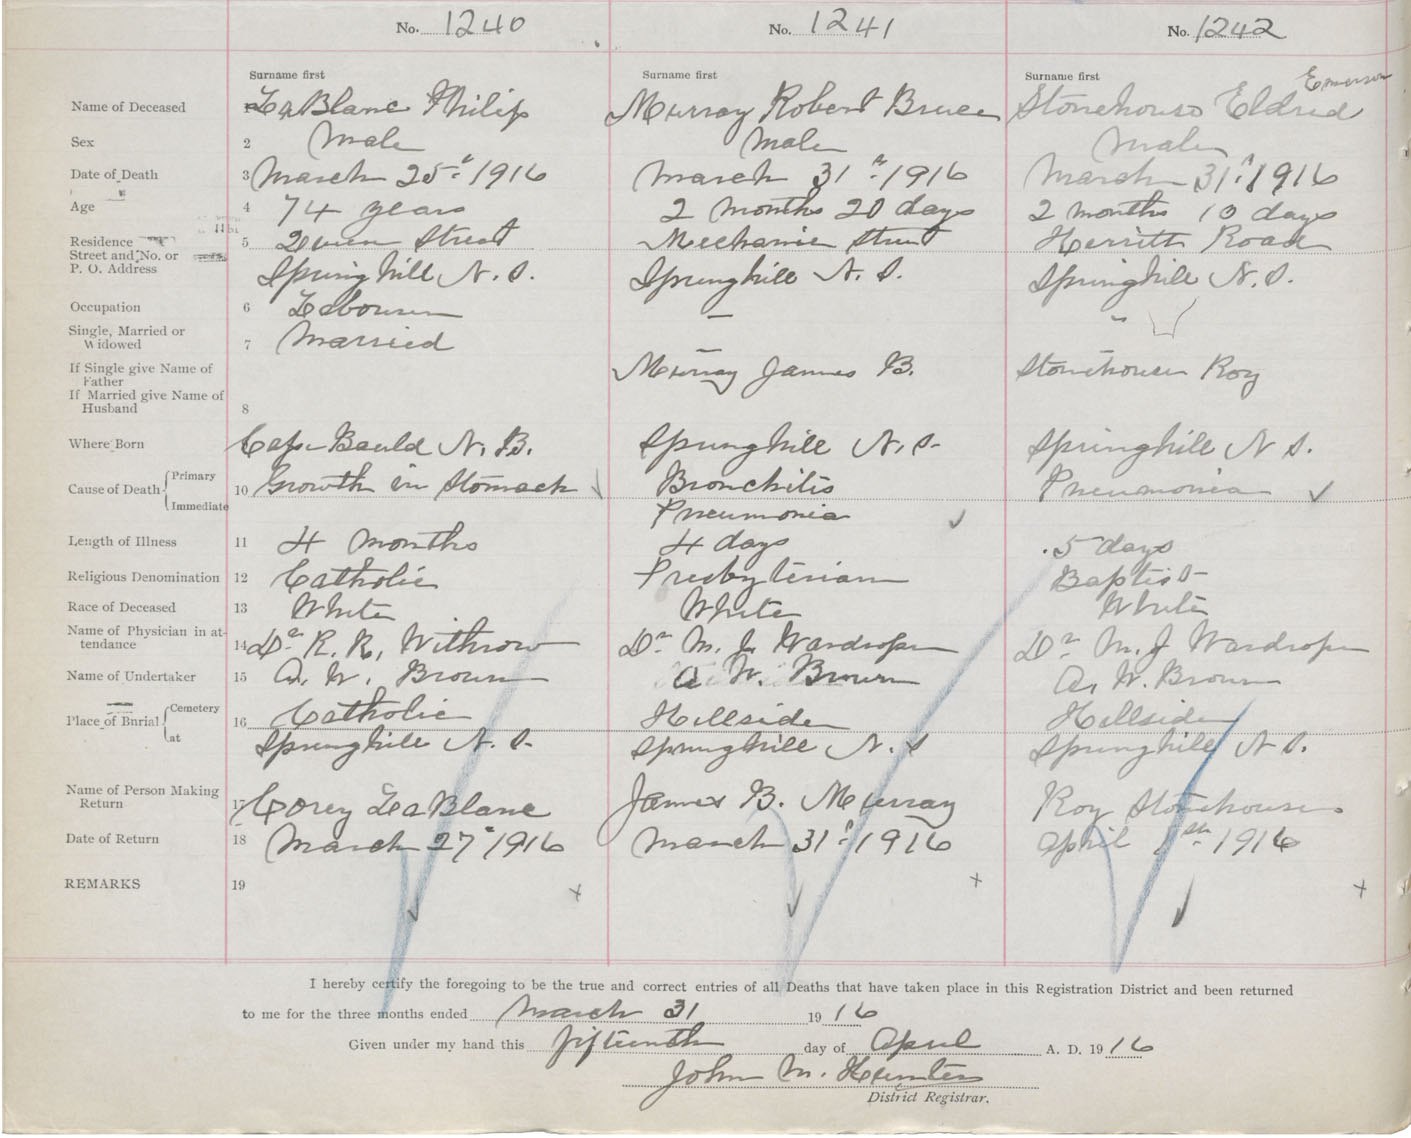 No. 1240 No. 1241 No. 1242
Surname first Surname first Surname first Emerson
Name of Deceased 1 LaBlanc Philip Murray Robert Bruce Stonehouse Eldred
Sex 2 Male Male Male
Date of Death 3 March 25th 1916 March 31st 1916 March 31st 1916
Age 4 74 years 2 months 20 days 2 months 10 days
Residence 5 Queen Street Mechanic Street Herritt Road
Street and No. or
P. O. Address Springhill N. S. Springhill N. S. Springhill N. S.
Occupation 6 Labourer — "
Single, Married or
Widowed 7 Married —
If Single give Name of
Father Murray James B. Stonehouse Roy
If Married give Name of
Husband 8
Where Born Cape Bauld N. B. Springhill N. S. Springhill N. S.
Cause of Death { Primary 10 Growth in Stomach Bronchitis Pneumonia
Immediate Pneumonia
Length of Illness 11 4 months 4 days 5 days
Religious Denomination 12 Catholic Presbyterian Baptist
Race of Deceased 13 White White White
Name of Physician in at-
tendance 14 Dr R. R. Withrow Dr M. J. Wardroper Dr M. J Wardroper
Name of Undertaker 15 A. W. Brown A W. Brown A. W. Brown
Place of Burial { Cemetery 16 Catholic Hillside Hillside
at Springhill N. S. Springhill N. S Springhill N S.
Name of Person Making
Return 17 Corey LaBlanc James B. Murray Roy Stonehouse
Date of Return 18 March 27 1916 March 31st 1916 April 1st 1916
REMARKS 19 x x x
I hereby certify the foregoing to be the true and correct entries of all Deaths that have taken place in this Registration District and been returned
to me for the three months ended March 31 1916
Given under my hand this fifteenth day of April A. D. 1916
John M. Hunter
District Registrar.